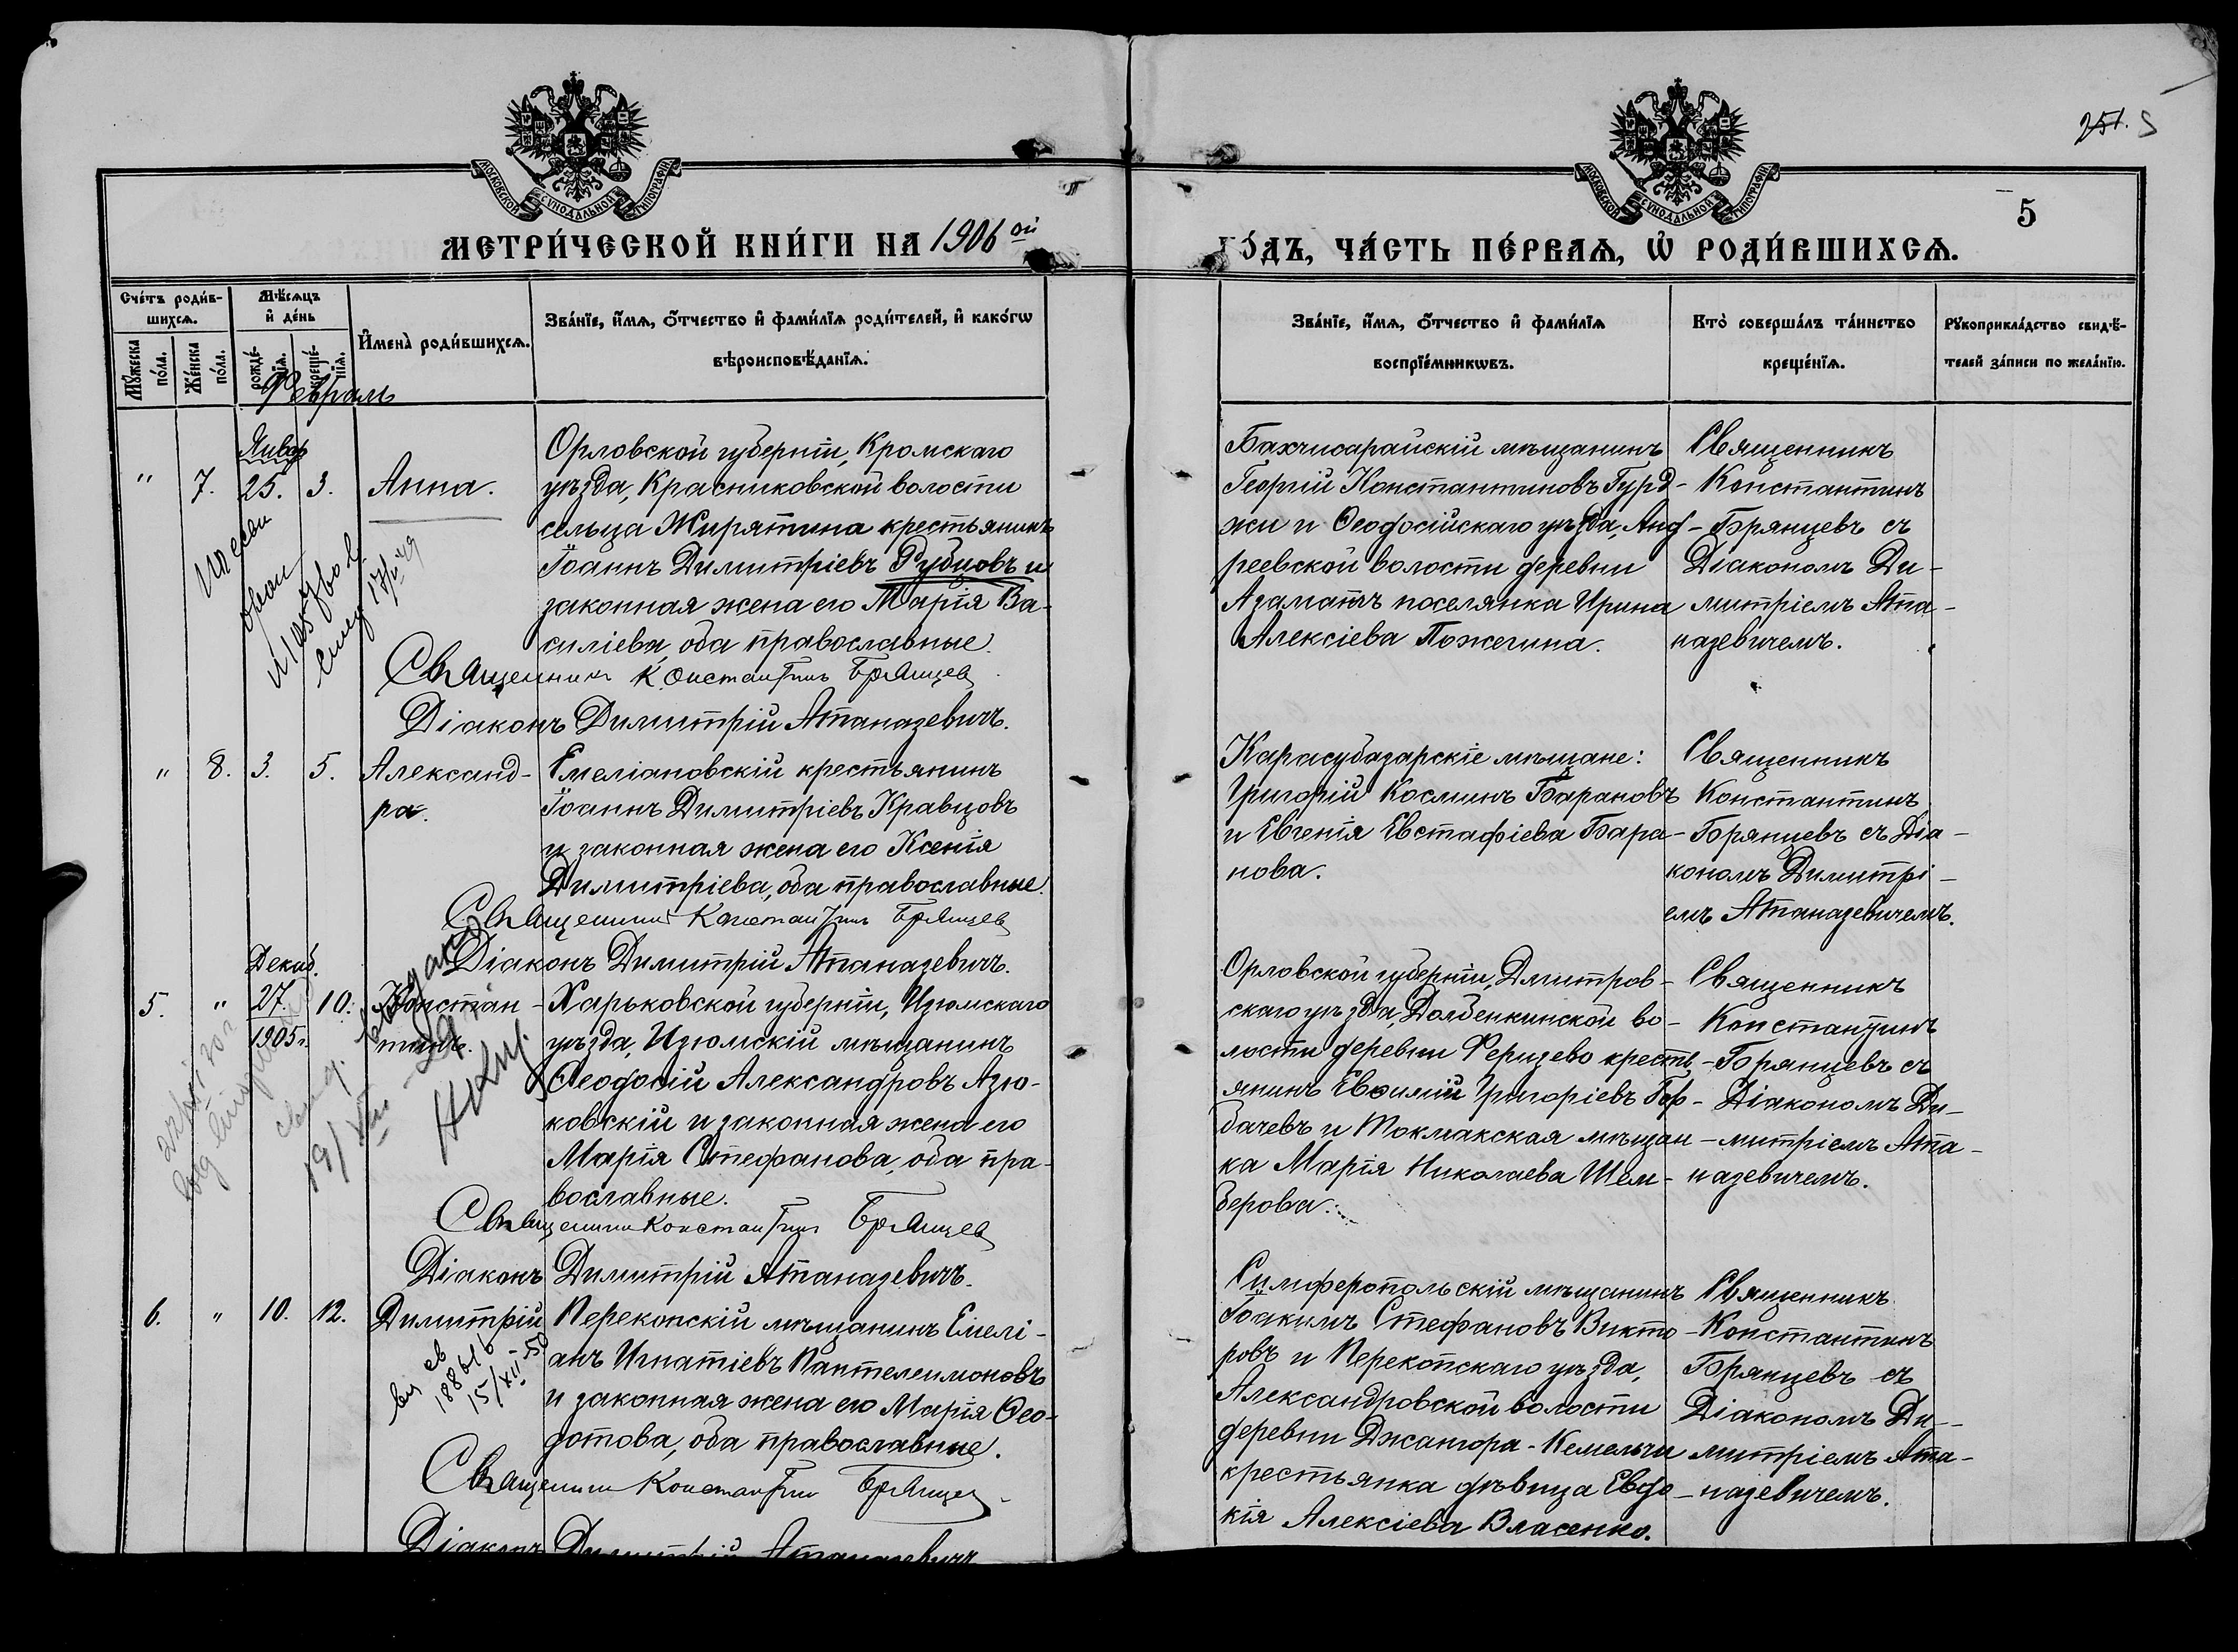 251. 5
МОСКОВСКОЙ СѴНОДАЛЬНОЙ ТИПОГРАФІИ
МОСКОВСКОЙ СѴНОДАЛЬНОЙ ТИПОГРАФІИ
5
МЕТРИ́ЧЕСКОЙ КНИ́ГИ НА 1906 ой
ГО́ДЪ, ЧА́СТЬ ПЕ́РВАѦ, Ѡ РОДИ́ВШИХСѦ.
Сче́тъ роди́в-
шихсѧ.
Мꙋ́жеска
по́ла.
Же́нска
по́ла.
Мѣ́сѧцъ
и де́нь
рожде́-
нїѧ.
креще́-
нїѧ.
Имена̀ роди́вшихсѧ.
Зва́нїе, и́мѧ, о́тчество и фами́лїѧ роди́телей, и како́гѡ
вѣроисповѣ́данїѧ.
Зва́нїе, и́мѧ, о́тчество и фами́лїѧ
воспрїе́мникѡвъ.
Кто̀ соверша́лъ та́инство
креще́нїѧ.
Рꙋкоприкла́дство свидѣ́-
телей за́писи по жела́нїю.
Февраль
Январ
" 7. 25. 3. Анна.
Орловской губерніи, Кромскаго
уѣзда, Красниковской волости
сельца Жирятина крестьянинъ
Іоаннъ Димитріевъ Рубцовъ и
законная жена его Марія Ва-
силіева, оба православные.
Священникъ Константинъ Брянцев
Діаконъ Димитрій Атаназевичъ.
Бахчисарайскій мѣщанинъ
Георгій Константиновъ Гурд-
жи и Ѳеодосійскаго уѣзда, Анд-
реевской волости деревни
Азаматъ поселянка Ирина
Алексіева Пожегина.
Священникъ
Константинъ
Брянцевъ съ
Діакономъ Ди-
митріемъ Ата-
назевичемъ.
17/II 49
" 8. 3. 5. Александ-
ра.
Емеліановскій крестьянинъ
Іоаннъ Димитріевъ Кравцовъ
и законная жена его Ксенія
Димитріева, оба православные.
Священникъ Константинъ Брянцев
Діаконъ Димитрій Атаназевичъ.
Карасубазарскіе мѣщане:
Григорій Косминъ Барановъ
и Евгенія Евстафіева Бара-
нова.
Священникъ
Константинъ
Брянцевъ съ Діа-
кономъ Димитрі-
емъ Атаназевичемъ.
Декаб.
5. " 27. 10. Констан-
1905 г. тинъ.
Харьковской губерніи, Изюмскаго
уѣзда, Изюмскій мѣщанинъ
Ѳеодосій Александровъ Азю-
ковскій и законная жена его
Марія Стефанова, оба пра-
вославные.
Священникъ Константинъ Брянцев
Діаконъ Димитрій Атаназевичъ.
Орловской губерніи, Дмитров-
скаго уѣзда, Долбенкинской во-
лости деревни Феризево кресть-
янинъ Евѳимій Григоріевъ Гор-
бачевъ и Токмакская мѣщан-
ка Марія Николаева Шем-
берова.
Священникъ
Константинъ
Брянцевъ съ
Діакономъ Ди-
митріемъ Ата-
назевичемъ.
6. " 10. 12. Димитрій
Перекопскій мѣщанинъ Емелі-
анъ Игнатіевъ Пантелеимоновъ
и законная жена его Марія Ѳео-
дотова, оба православные.
Священникъ Константинъ Брянцев
Діаконъ Димитрій Атаназевичъ
св
188616
15/XII-50
Симферопольскій мѣщанинъ
Іоакимъ Стефановъ Викто-
ровъ и Перекопскаго уѣзда,
Александровской волости
деревни Джангора-Кемельчи
крестьянка дѣвица Евдо-
кія Алексіева Власенко.
Священникъ
Константинъ
Брянцевъ съ
Діакономъ Ди-
митріемъ Ата-
назевичемъ.